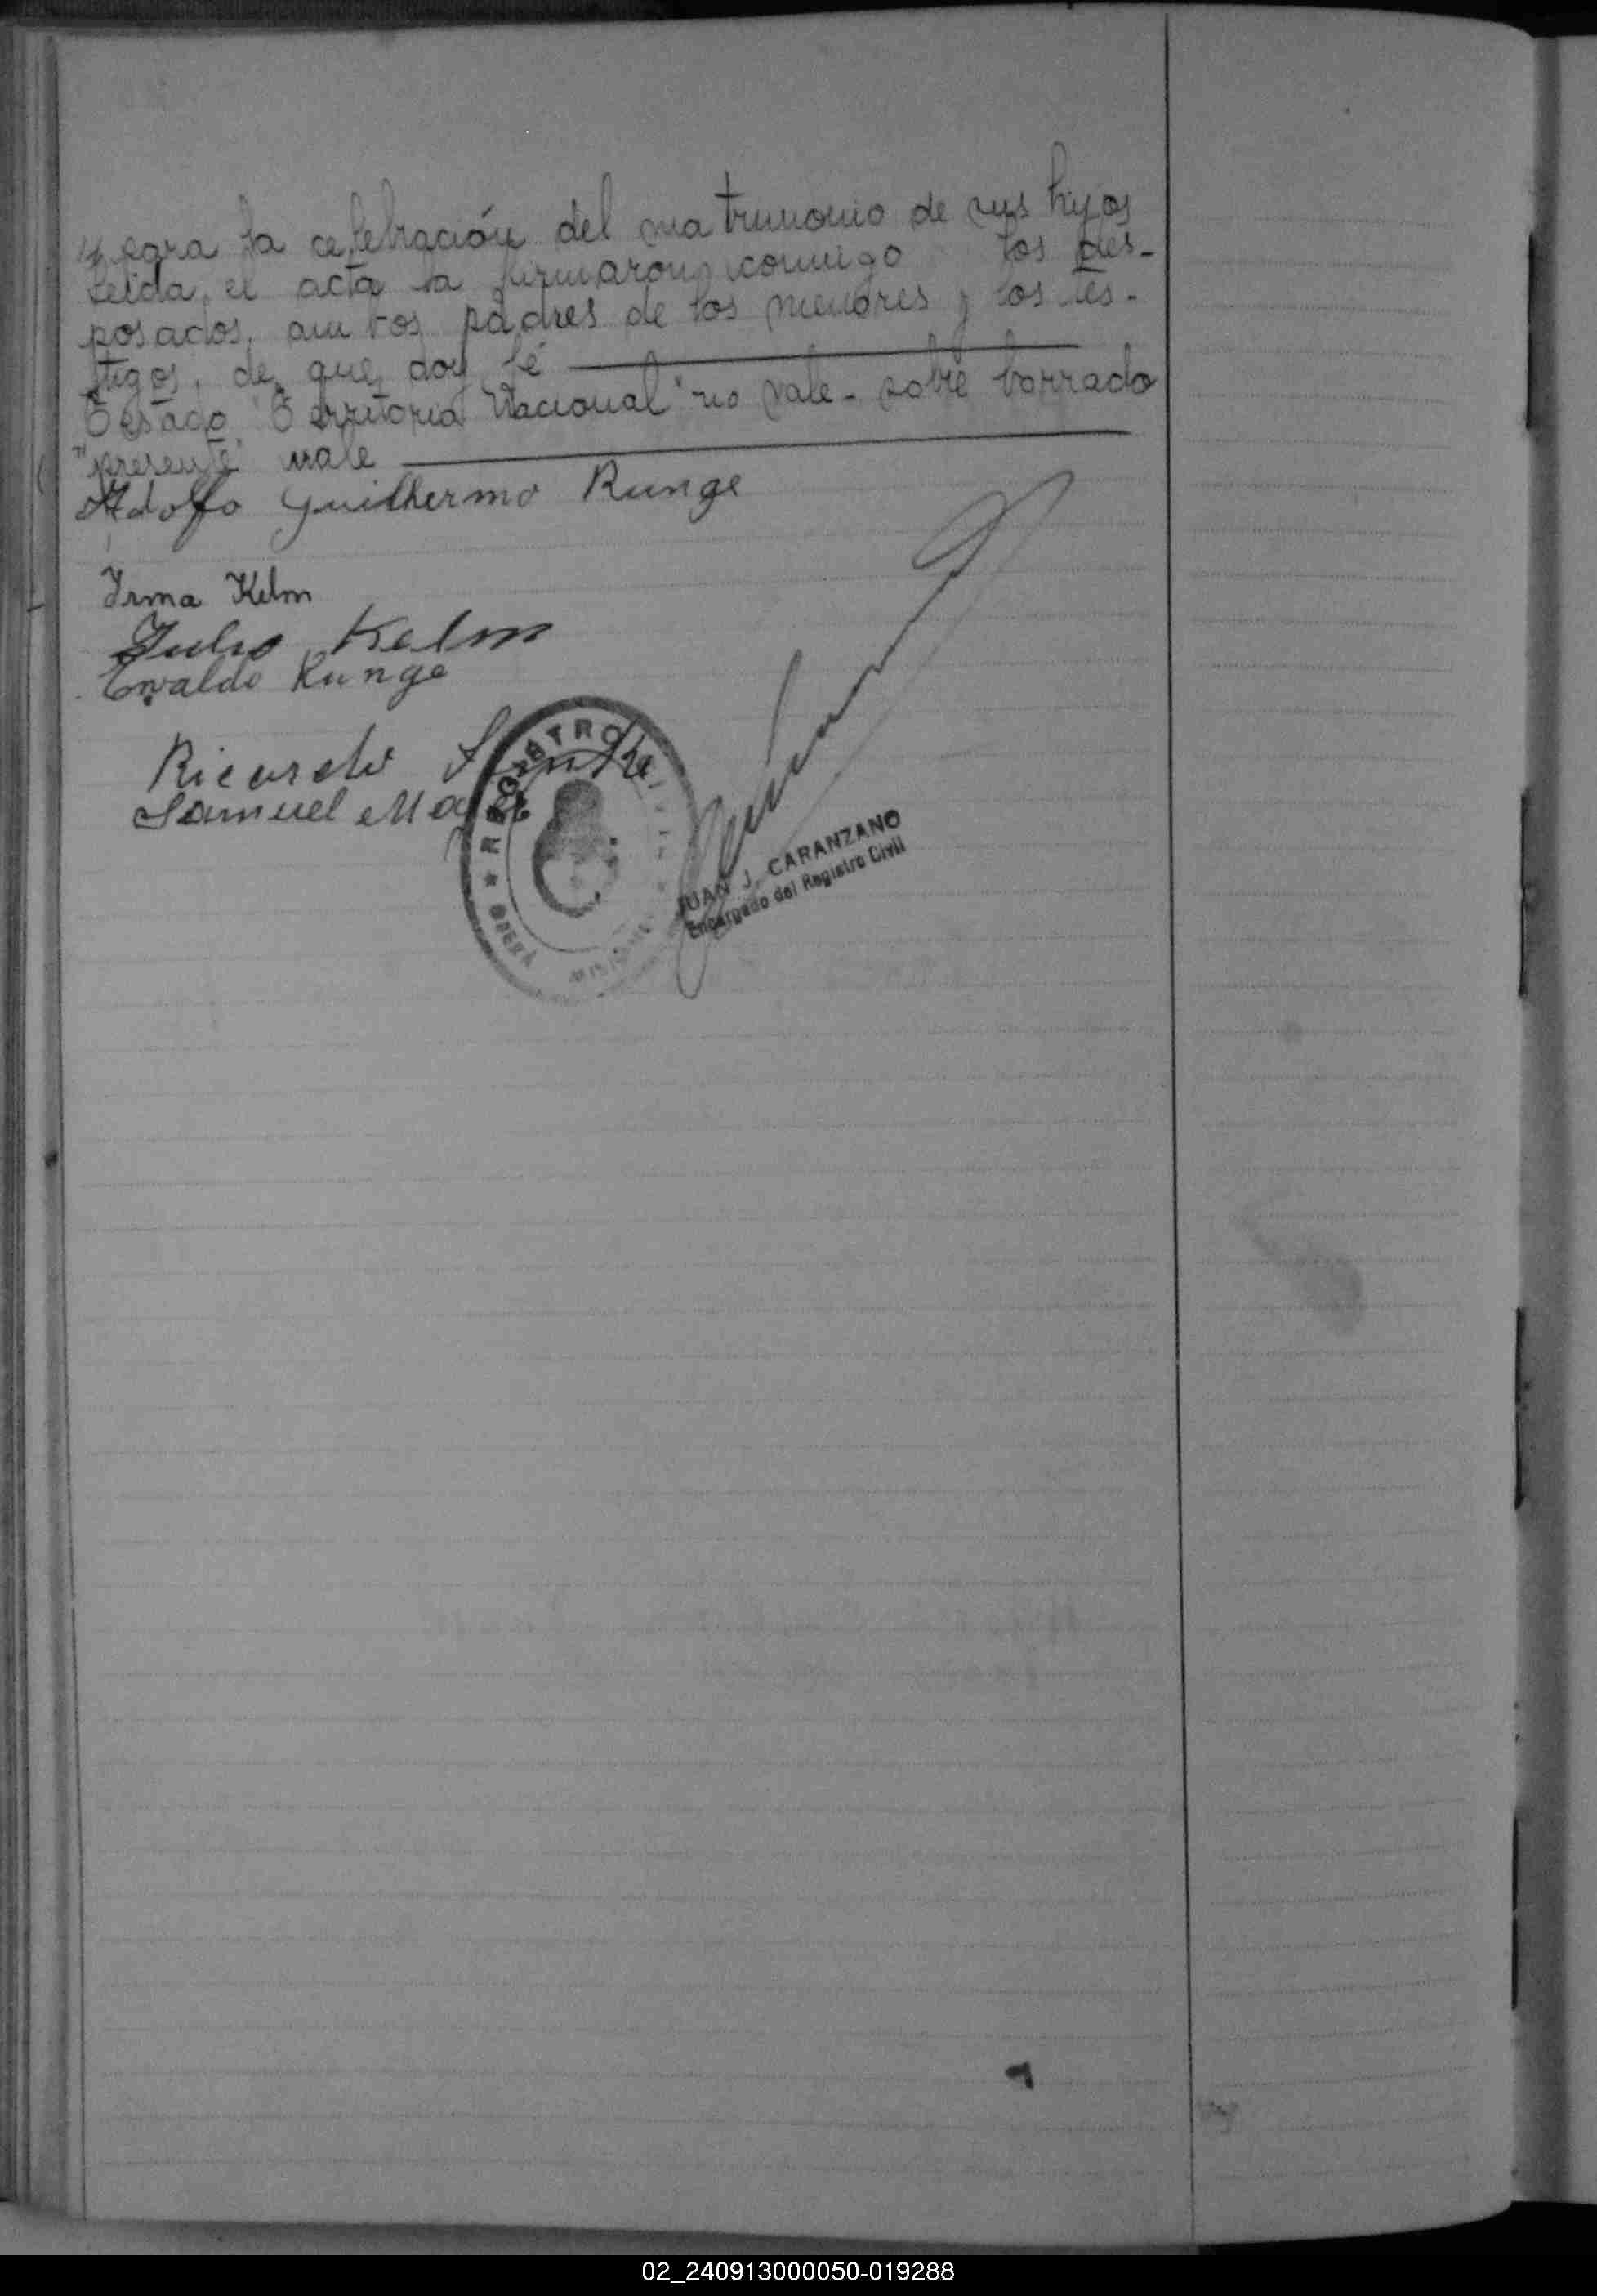 para la celebración del matrimonio de sus hijos
leida el acta la firmaron conmigo los des-
posados, ambos padres de los menores y los tes-
tigos, de que doy fé
Testado "Territorio Nacional" no vale - sobre borrado
"presente" vale
Adolfo Guilhermo Runge
Irma Kelm
Julio Kelm
Ewaldo Runge
Ricardo
Samuel
REGISTRO CIVIL
★ OBERÁ
MISIONES
JUAN J. CARANZANO
Encargado del Registro Civil
02_240913000050-019288